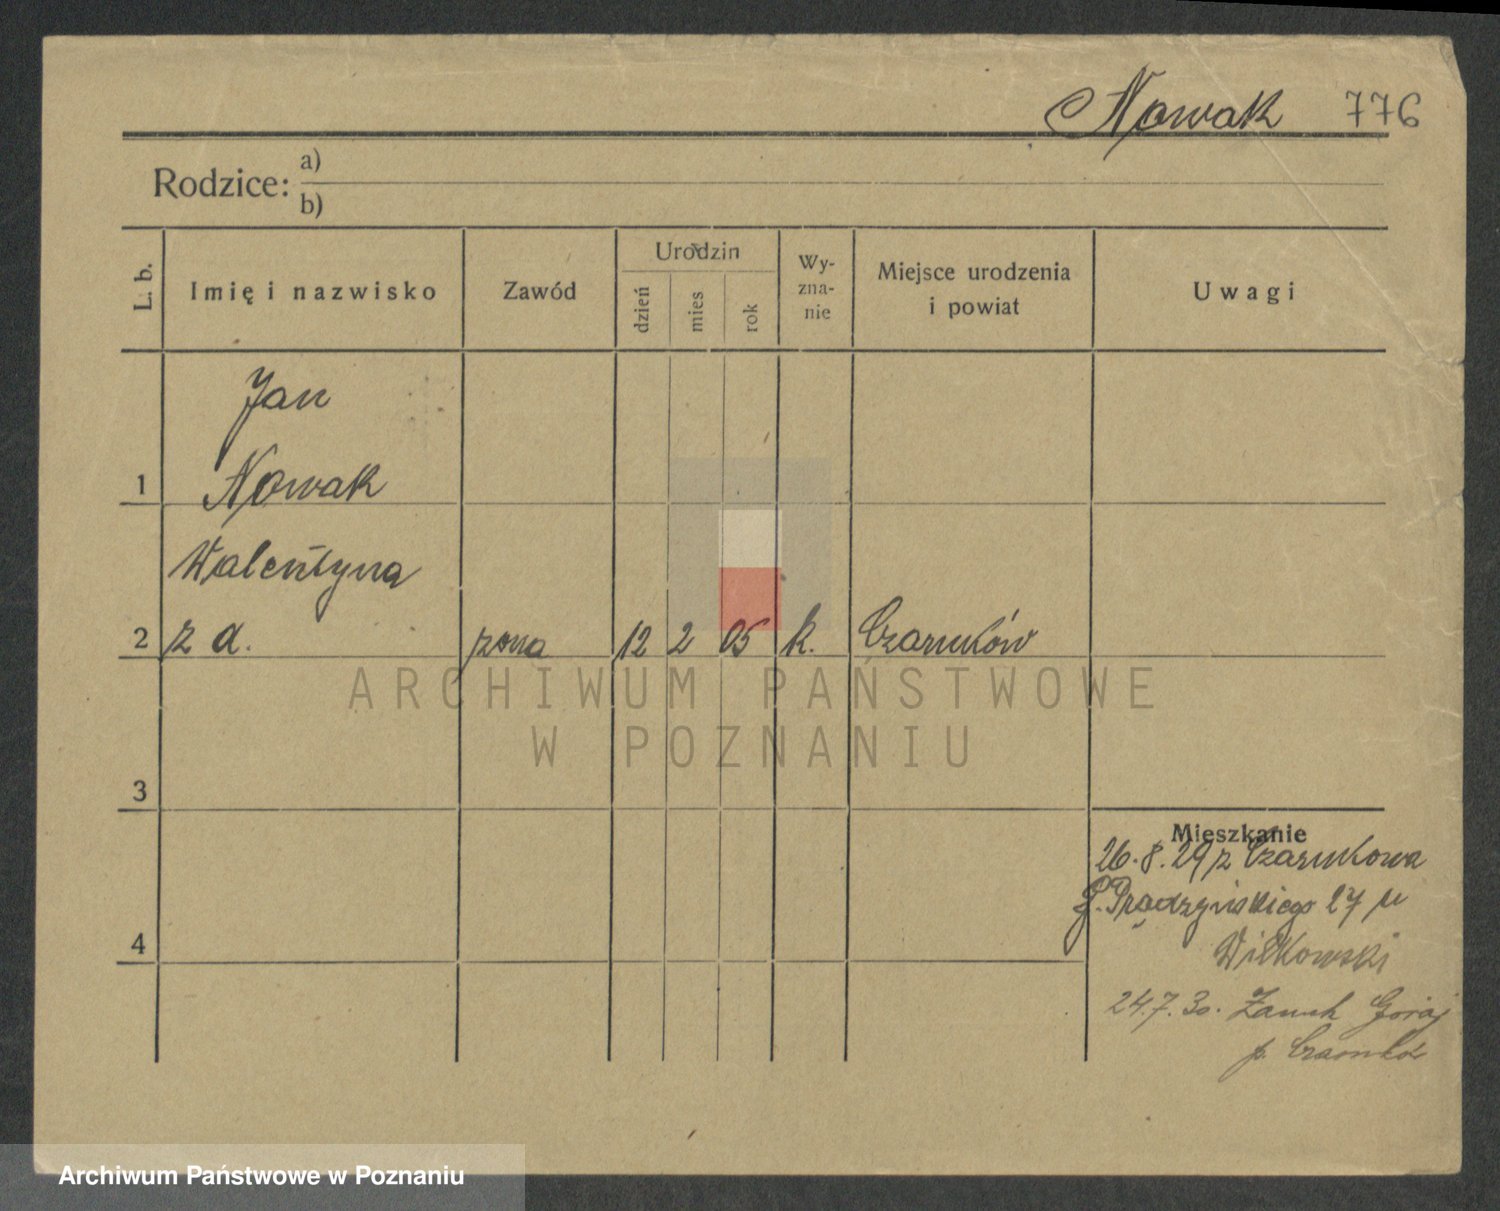 Nowak 776
Rodzice: a)
b)
L. b. Imię i nazwisko Zawód Urodzin dzień mies rok Wy-zna-nie Miejsce urodzenia i powiat Uwagi
Jan
1 Nowak
Walentyna
2 z d. żona 12 2 05 k. Czarnków
ARCHIWUM PAŃSTWOWE
W POZNANIU
3
Mieszkanie
26.8.29 z Czarnkowa
Prądzyńskiego 27 u
4
Witkowski
24.7.30. Zamek Goraj
p. Czarnków
Archiwum Państwowe w Poznaniu